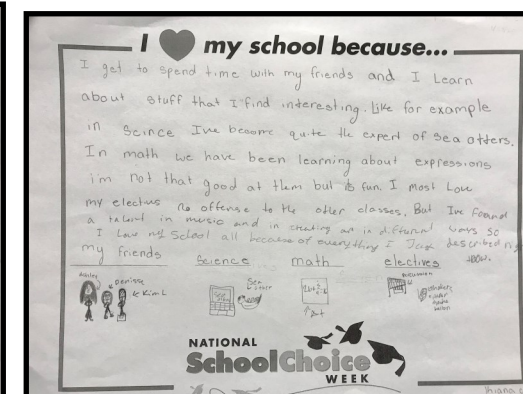 I my school because...
I get to spend time with my friends and I Learn
about stuff that I find interesting. Like for example
in Scince Ive become quite the expert of sea otters.
In math we have been learning about expressions
i'm not that good at them but its fun. I most Love
my electives no offense to the other classes. But Ive found
a talent in music and in creating art in different ways so
I Love my School all because of everything I Just described right
now.
my friends Science math electives
ashley Denisse Kim L
Sea otter
NATIONAL
School Choice
WEEK